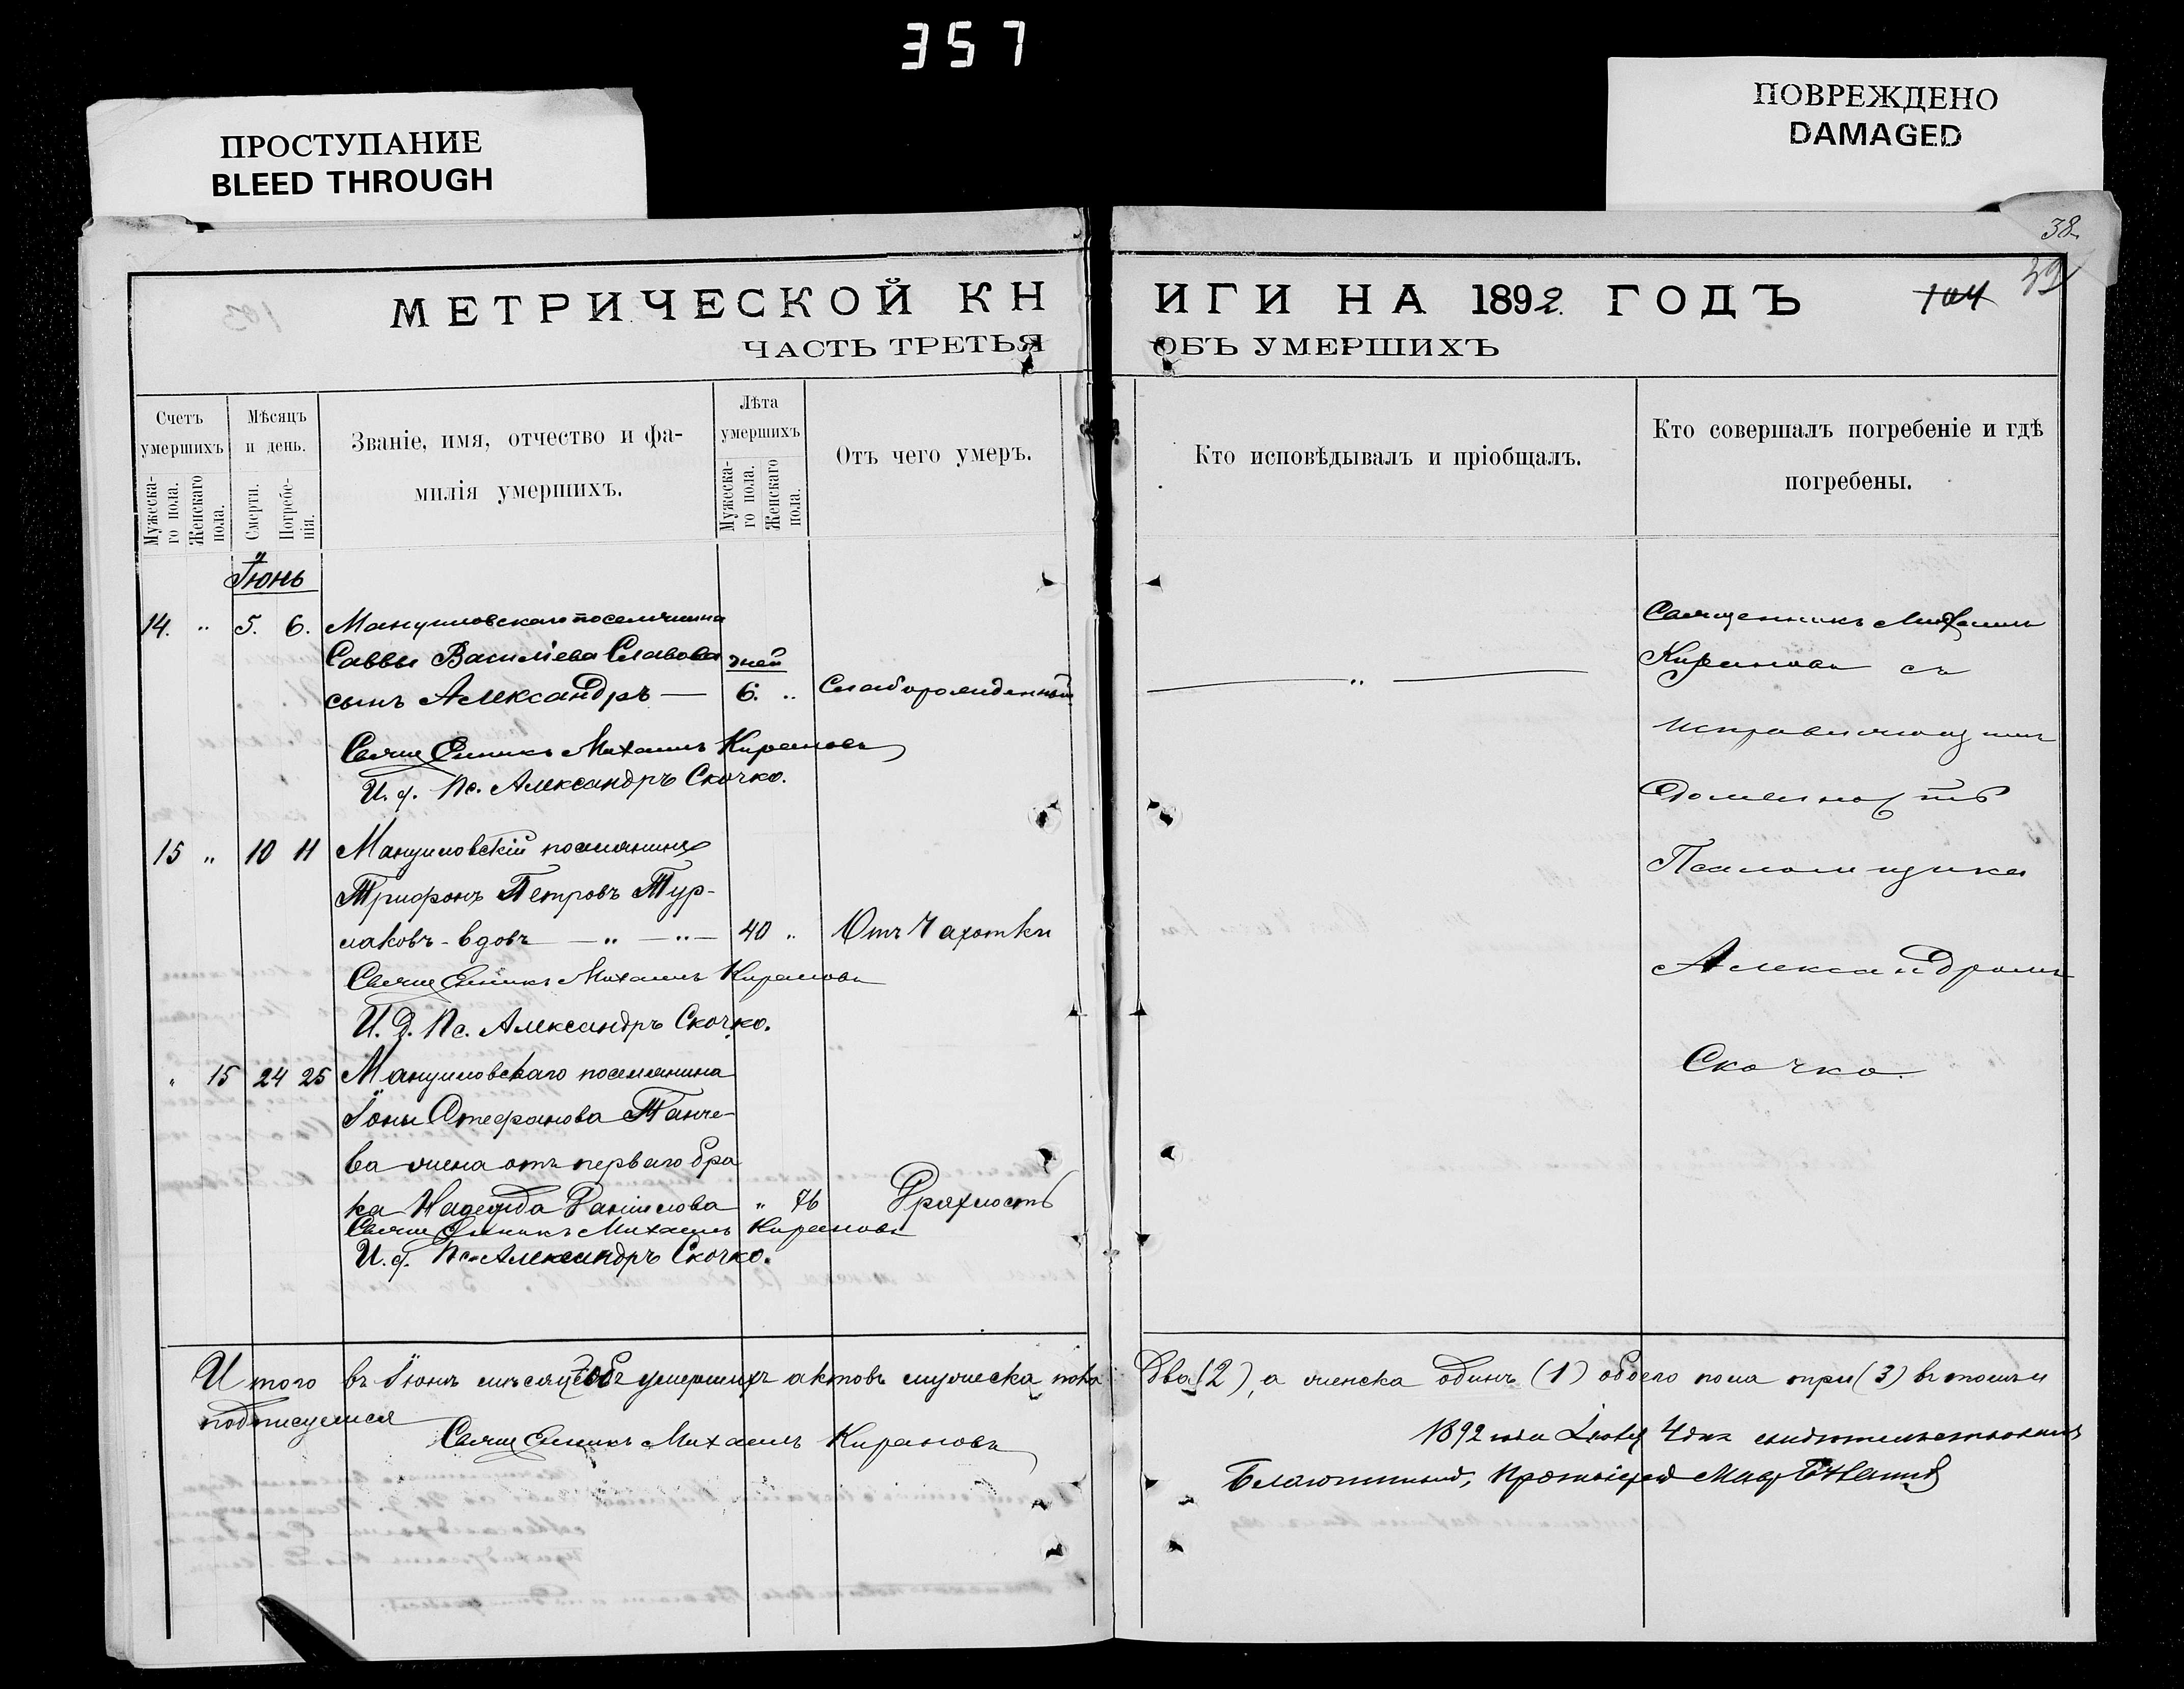 357
ПРОСТУПАНИЕ
BLEED THROUGH
ПОВРЕЖДЕНО
DAMAGED
38.
39
104
МЕТРИЧЕСКОЙ КНИГИ НА 1892 ГОДЪ
ЧАСТЬ ТРЕТЬЯ ОБЪ УМЕРШИХЪ
Счетъ умершихъ
Мужеска-го пола.
Женскаго пола.
Мѣсяцъ и день.
Смерти.
Погребе-нія.
Званіе, имя, отчество и фа-
милія умершихъ.
Лѣта умершихъ
Мужеска-го пола.
Женскаго пола.
Отъ чего умеръ.
Кто исповѣдывалъ и пріобщалъ.
Кто совершалъ погребеніе и гдѣ
погребены.
Іюнь
14. " 5. 6. Мануиловскаго поселянина
Саввы Василіева Славова дней
сынъ Александръ — 6. " Слаборожденный
Священникъ Михаилъ Кирановъ
И. д. Пс. Александръ Скочко.
15 " 10 11 Мануиловскій поселянинъ
Трифонъ Петровъ Тур-
лаковъ - вдовъ — " — " — 40 " Отъ Чахотки
Священникъ Михаилъ Кирановъ
И. Д. Пс. Александръ Скочко.
" 15 24 25 Мануиловскаго поселянина
Іоны Стефанова Танче-
ва жена отъ перваго бра
ка Надежда Даніилова " 76 Дряхлость
Священникъ Михаилъ Кирановъ
И. д. Пс. Александръ Скочко.
Священникъ Михаилъ
Кирановъ съ
исправляющимъ
Должность
Псаломщика
Александромъ
Скочко.
Итого въ Іюнѣ мѣсяцѣ объ умершихъ актовъ мужеска пола два (2), а женска одинъ (1) обоего пола три (3) въ томъ и
подписуемся
Священникъ Михаилъ Кирановъ
1892 года 4 дня свидѣтельствовалъ
Благочинный, Протоіерей